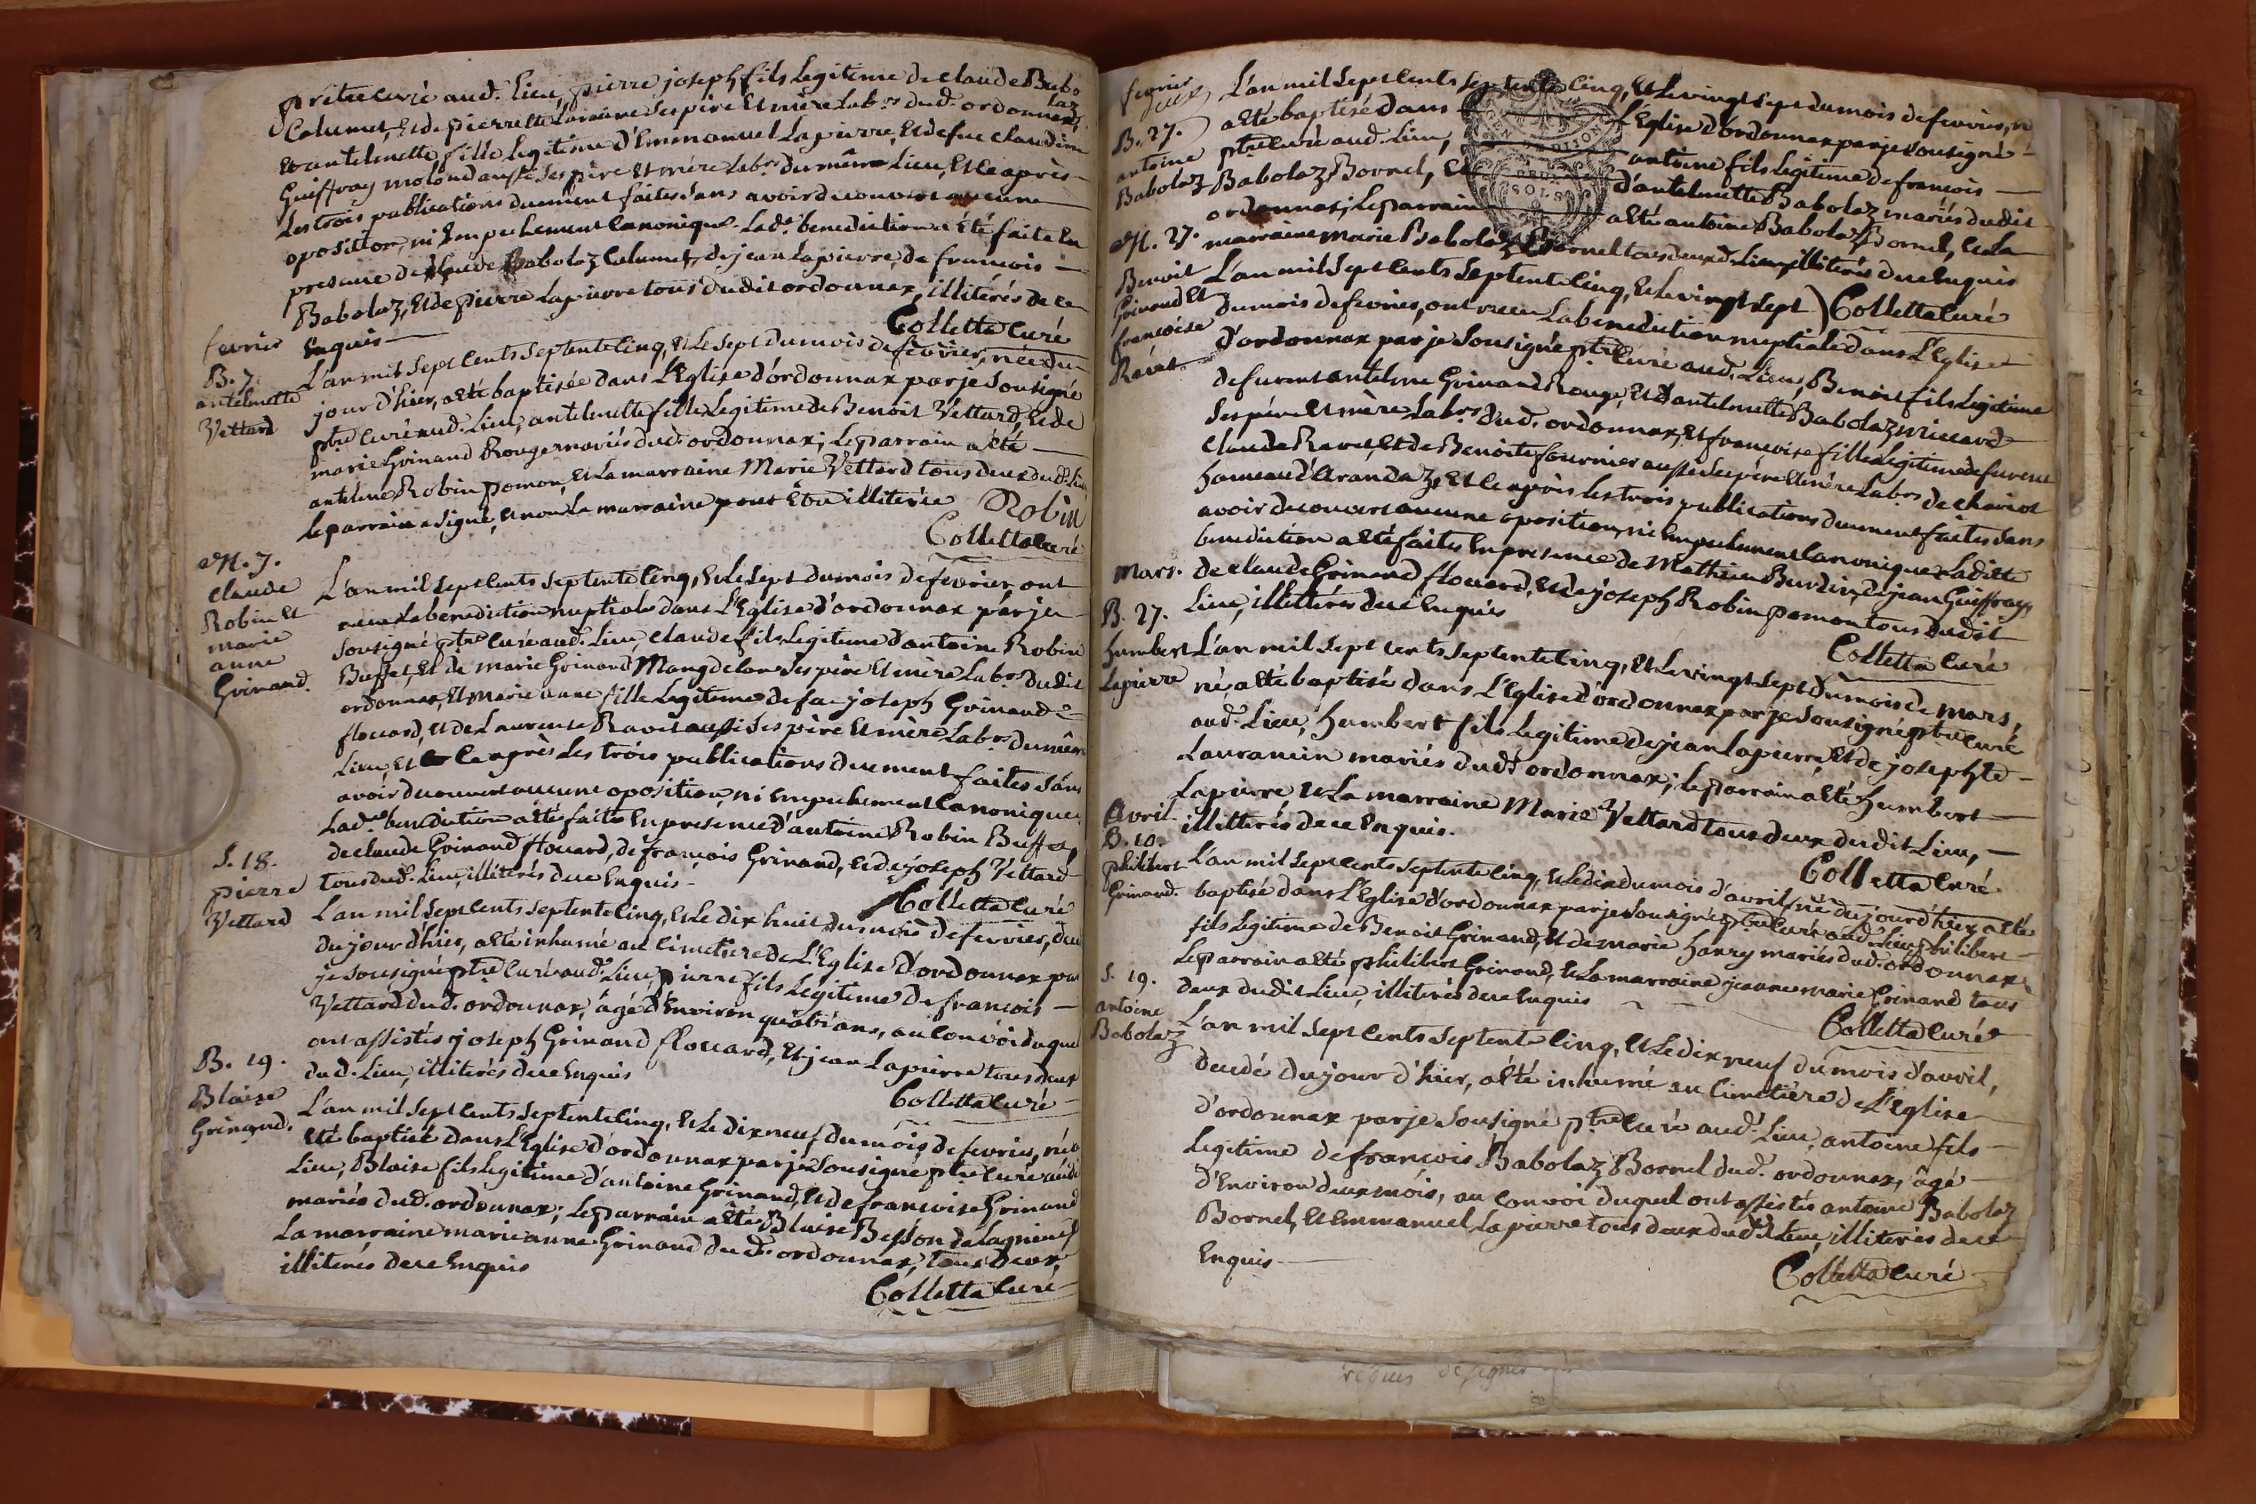 prêtre curé aud. Lieu, pierre joseph fils Legitime de claude Babo
laz
Calumet, et de pierrette Laraime ses père et mère Labrs dud. ordonnax,
et antelmette fille Legitime d'Emmanuel Lapierre, et de fue claudine
Guiffray molond aussi ses père et mère Labrs du même Lieu, et ce après
Les trois publications duement faites sans avoir decouvert aucune
oposition, ni Empechement canonique. Lade benediction a été faite en
presence de claude Babolaz Calumet, de jean Lapierre, de francois
Babolaz, et de pierre Lapierre tous dudit ordonnax, illiterés de ce
Enquis
Colletta Curé
fevrier
B. 7.
antelmette
Vettard
L'an mil sept cents septente cinq, et Le sept du mois de fevrier, née du
jour d'hier, a été baptisée dans L'Eglise d'ordonnax par je sousigné
ptre curé aud. Lieu, antelmette fille Legitime de Benoit Vettard, et de
marie Grinand Rouge mariés dud. ordonnax; Le parrain a été
antelme Robin pomon, et La marraine Marie Vettard tous deux dud. Lieu
Le parrain a signé, et non La marraine pour être illiterée
Robin
Colletta curé
M. 7.
claude
Robin et
marie
anne
Grinand.
L'an mil sept cents septente cinq, et Le sept du mois de fevrier, ont
recu La benediction nuptiale dans L'Eglise d'ordonnax par je
sousigné ptre curé aud. Lieu, claude fils Legitime d'antoine Robin
Buffet, et de marie Grinand Mangdelon ses père et mère Labrs dudit
ordonnax, et marie anne fille Legitime de fue joseph Grinand
flouard, et de Laurence Ravet aussi ses père et mère Labrs du même
Lieu, et ce après Les trois publications duement faites sans
avoir decouvert aucune oposition, ni Empechement canonique,
Lade benediction a été faite en presence d'antoine Robin Buffet,
de claude Grinand flouard, de francois Grinand, et de joseph Vettard
tous dud. Lieu, illiterés de ce Enquis.
Colletta Curé
S. 18.
pierre
Vettard
L'an mil sept cents septente cinq, et Le dix huit du mois de fevrier, decedé
du jour d'hier, a été inhumé au cimetiere de L'Eglise d'ordonnax par
je sousigné ptre curé aud. Lieu, pierre fils Legitime de francois
Vettard dud. ordonnax, âgé d'Environ quatre ans, au convoi duquel
ont assistés joseph Grinand flouard, et jean Lapierre tous deux
dud. Lieu, illiterés de ce Enquis
Colletta Curé
B. 19.
Blaise
Grinand.
L'an mil sept cents septente cinq, et Le dix neuf du mois de fevrier, né a
été baptisé dans L'Eglise d'ordonnax par je sousigné ptre curé aud.
Lieu, Blaise fils Legitime d'antoine Grinand, et de francoise Grinand
mariés dud. ordonnax; Le parrain a été Blaise Besson de Lagnieu, et
La marraine marie anne Grinand dud. ordonnax, tous deux
illiterés de ce Enquis
Colletta Curé
fevrier
B. 27.
antoine
Babolaz
L'an mil sept cents septente cinq, et Le vingt sept du mois de fevrier, né
a été baptisé dans L'Eglise d'ordonnax par je sousigné
ptre curé aud. Lieu, antoine fils Legitime de francois
Babolaz Bornel, et d'antelmette Babolaz mariés dudit
ordonnax; Le parrain a été antoine Babolaz Bornel, et La
marraine marie Babolaz Bornel tous deux d. Lieu, illiterés de ce Enquis
GEN
SOLS
Colletta Curé
M. 27.
Benoit
Grinand et
francoise
Ravet
L'an mil sept cents septente cinq, et Le vingt sept
du mois de fevrier, ont recu La benediction nuptiale dans L'Eglise
d'ordonnax par je sousigné ptre curé aud. Lieu, Benoit fils Legitime
de furent antelme Grinand Rouge, et d'antelmette Babolaz miccard
ses père et mère Labrs dud. ordonnax, et francoise fille Legitime de furent
claude Ravet, et de Benoite fournier aussi ses père et mère Labrs de chariot
hameau d'Arandaz, et ce après Les trois publications duement faites sans
avoir decouvert aucune oposition, ni Empechement canonique Ladite
benediction a été faite en presence de Mathieu Burdin, de jean Guiffray,
de claude Grinand flouard, et de joseph Robin pomon tous dudit
Lieu, illiterés de ce Enquis
Colletta Curé
Mars.
B. 27.
humbert
Lapierre
L'an mil sept cents septente cinq, et Le vingt sept du mois de mars,
né, a été baptisé dans L'Eglise d'ordonnax par je sousigné ptre curé
aud. Lieu, humbert fils Legitime de jean Lapierre, et de josephte
Laurancin mariés dud. ordonnax; Le parrain a été humbert
Lapierre et La marraine Marie Vettard tous deux dudit Lieu,
illitterés de ce Enquis.
Colletta Curé
Avril
B. 10.
philibert
Grinand.
L'an mil sept cents septente cinq, et Le dix du mois d'avril, né du jour d'hier, a été
baptisé dans L'Eglise d'ordonnax par je sousigné ptre curé aud. Lieu, philibert
fils Legitime de Benoit Grinand, et de marie hanry mariés dud. ordonnax,
Le parrain a été philibert Grinand, et La marraine jeanne marie Grinand tous
deux dudit Lieu, illiterés de ce Enquis
Colletta Curé
S. 19.
antoine
Babolaz
L'an mil sept cents septente cinq, et Le dix neuf du mois d'avril,
decedé du jour d'hier, a été inhumé au cimetière de L'Eglise
d'ordonnax par je sousigné ptre curé aud. Lieu, antoine fils
Legitime de francois Babolaz Bornel dud. ordonnax, âgé
d'Environ deux mois, au convoi duquel ont assistés antoine Babolaz
Bornel, et Emmanuel Lapierre tous deux dud. Lieu, illiterés de ce
Enquis
Colletta Curé